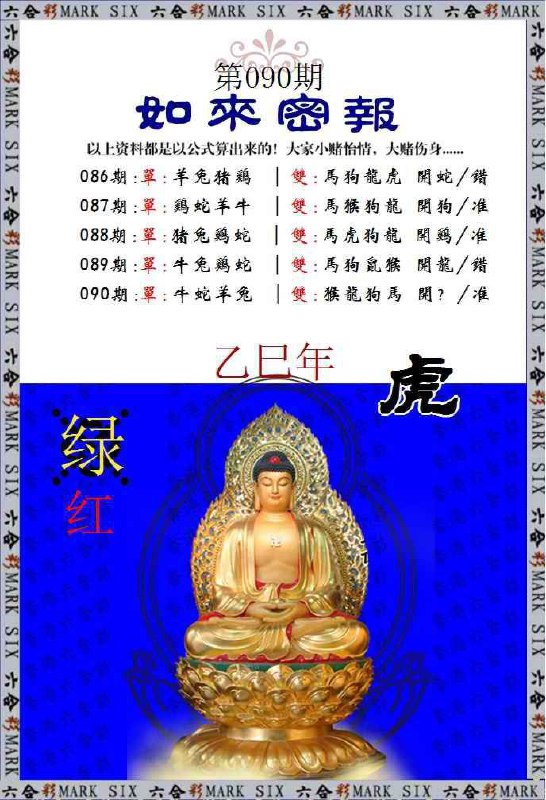 六合彩MARK SIX 六合彩MARK SIX 六合彩MARK SIX 六合彩MARK SIX
第090期
如來密報
以上资料都是以公式算出来的！大家小赌怡情，大赌伤身......
086期:單:羊兔猪鷄 │ 雙:馬狗龍虎 開蛇/錯
087期:單:鷄蛇羊牛 │ 雙:馬猴狗龍 開狗/准
088期:單:猪兔鷄蛇 │ 雙:馬虎狗龍 開鷄/准
089期:單:牛兔鷄蛇 │ 雙:馬狗鼠猴 開龍/錯
090期:單:牛蛇羊兔 │ 雙:猴龍狗馬 開？/准
乙巳年
虎
绿
红
卍
六合彩MARK SIX 六合彩MARK SIX 六合彩MARK SIX 六合彩MARK SIX